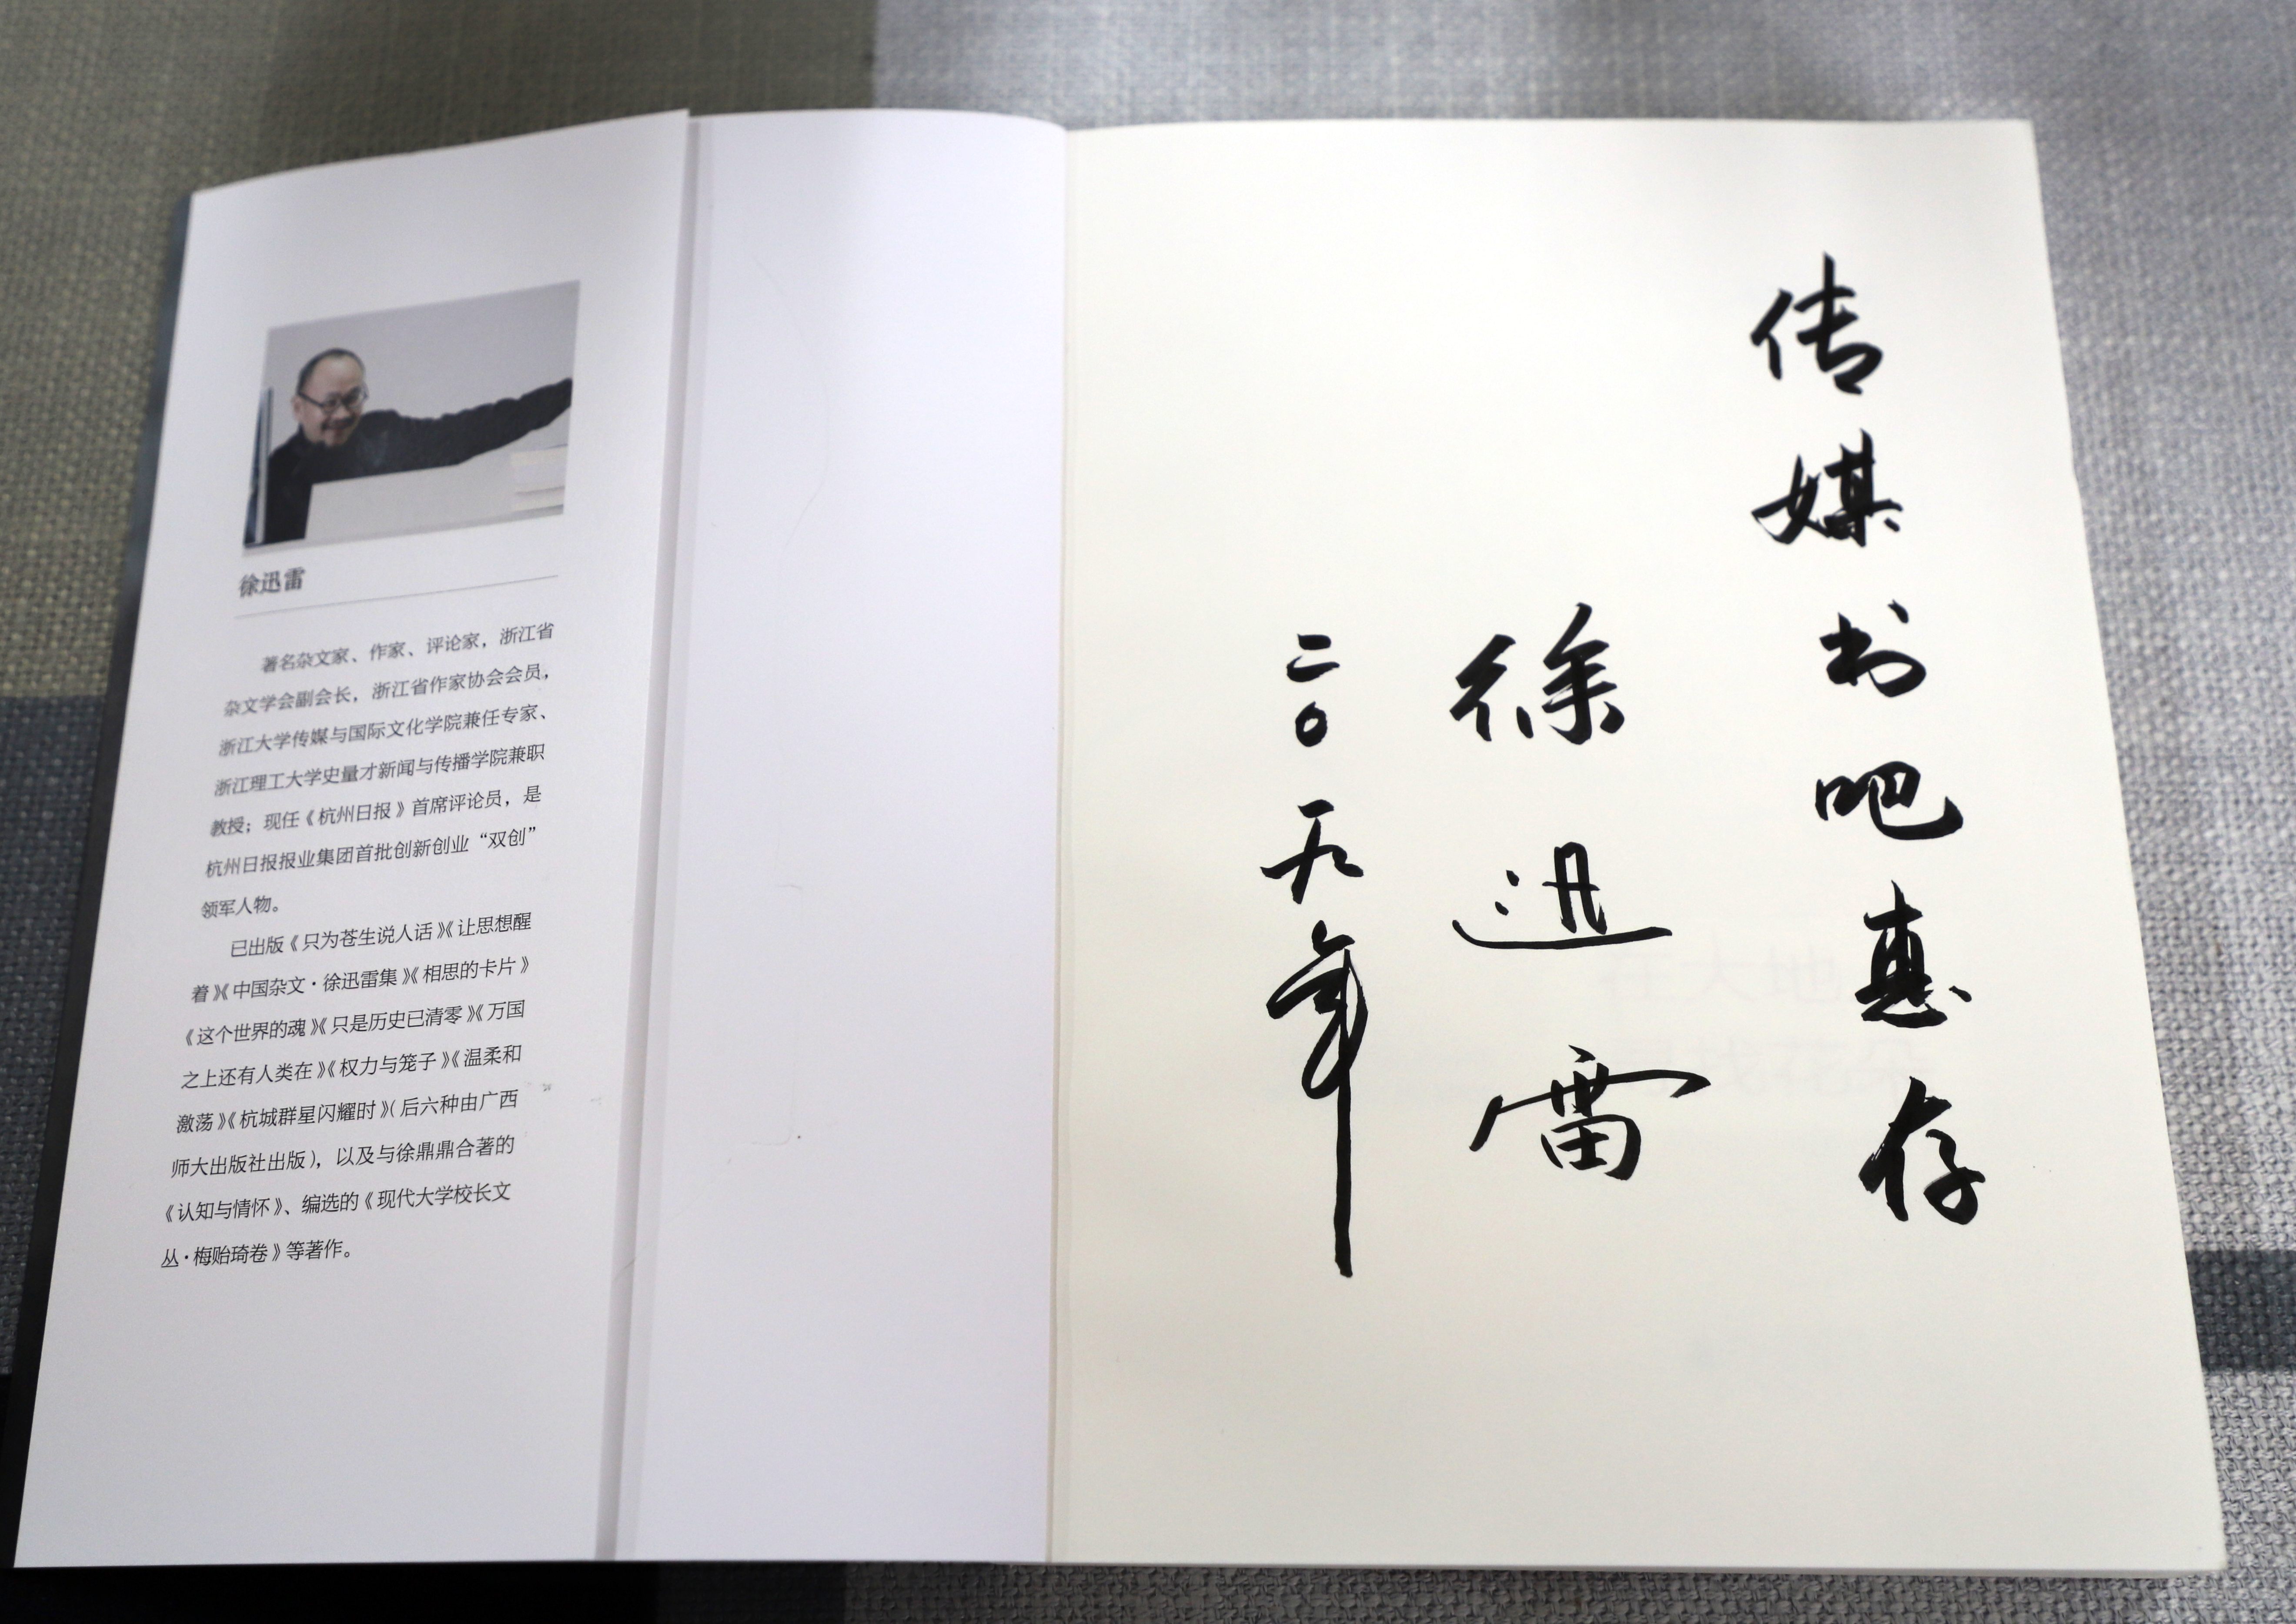 徐迅雷
著名杂文家、作家、评论家，浙江省
杂文学会副会长，浙江省作家协会会员，
浙江大学传媒与国际文化学院兼任专家、
浙江理工大学史量才新闻与传播学院兼职
教授；现任《杭州日报》首席评论员，是
杭州日报报业集团首批创新创业“双创”
领军人物。
已出版《只为苍生说人话》《让思想醒
着》《中国杂文·徐迅雷集》《相思的卡片》
《这个世界的魂》《只是历史已清零》《万国
之上还有人类在》《权力与笼子》《温柔和
激荡》《杭城群星闪耀时》（后六种由广西
师大出版社出版），以及与徐鼎鼎合著的
《认知与情怀》、编选的《现代大学校长文
丛·梅贻琦卷》等著作。
传媒书吧惠存
徐迅雷
二〇一九年